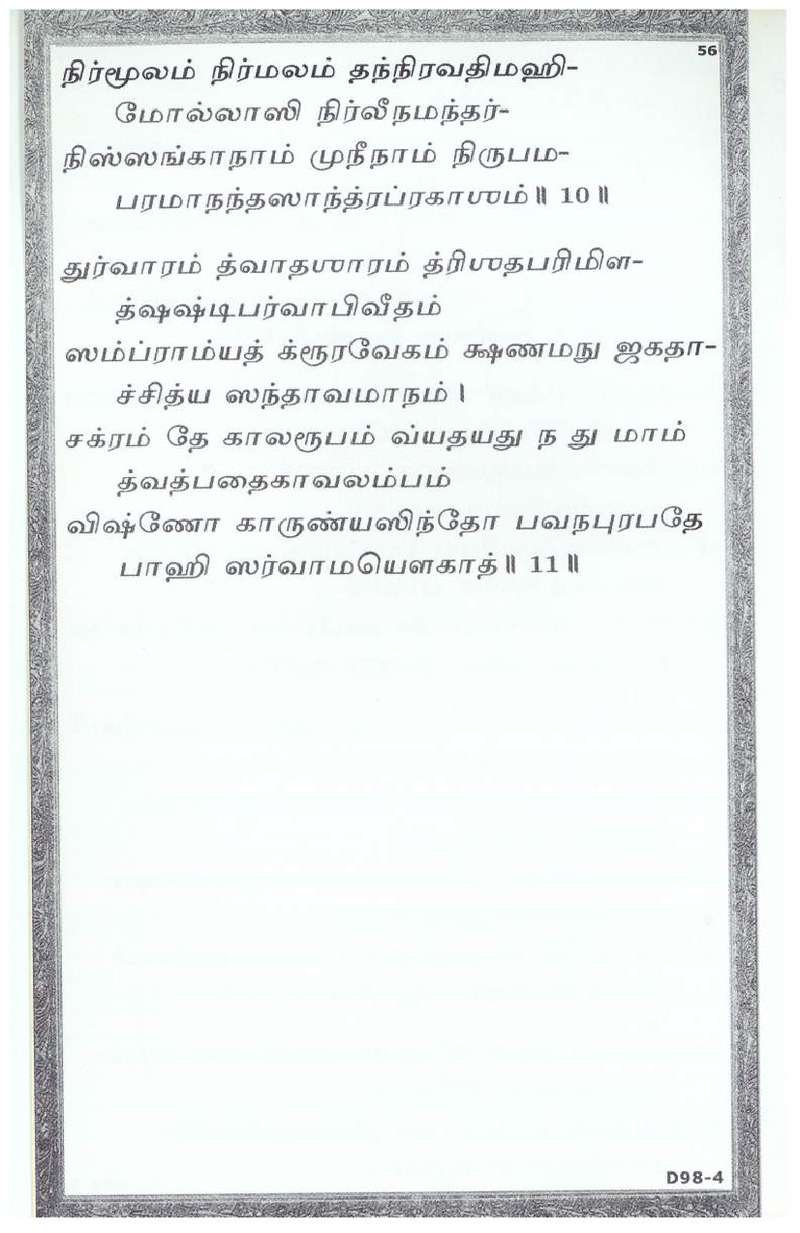 56
நிர்மூலம் நிர்மலம் தந்நிரவதிமஹி-
மோல்லாஸி நிர்லீநமந்தர்-
நிஸ்ஸங்காநாம் முநீநாம் நிருபம-
பரமாநந்தஸாந்த்ரப்ரகாஶம்॥ 10॥
துர்வாரம் த்வாதஶாரம் த்ரிஶதபரிமிள-
த்ஷஷ்டிபர்வாபிவீதம்
ஸம்ப்ராம்யத் க்ரூரவேகம் க்ஷணமநு ஜகதா-
ச்சித்ய ஸந்தாவமாநம்।
சக்ரம் தே காலரூபம் வ்யதயது ந து மாம்
த்வத்பதைகாவலம்பம்
விஷ்ணோ காருண்யஸிந்தோ பவநபுரபதே
பாஹி ஸர்வாமயௌகாத்॥ 11॥
D98-4